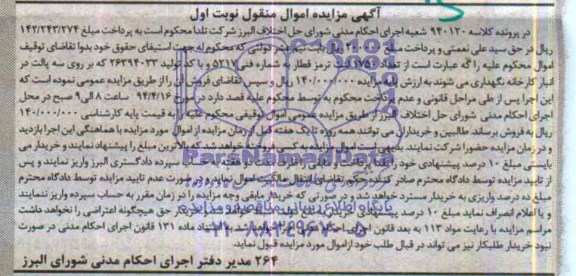 آگهی مزایده اموال منقول نوبت اول
در پرونده کلاسه ۹۴۰۱۲۰ شعبه اجرای احکام مدنی شورای حل اختلاف البرز شرکت تلدا محکوم است به پرداخت مبلغ ۱۴۲/۲۴۳/۲۷۴
ریال در حق سید علی نعمتی و پرداخت مبلغ ریال بابت نیم عشر دولتی که محکوم له جهت استیفای حقوق خود بدوا تقاضای توقیف
اموال محکوم علیه را که عبارت است از تعداد ۱۷۵۰ لنت ترمز قطار به شماره فنی ۵۲۱۷ و با کد تولید ۲۶۳۹۴۰۳۳ که بر روی سه پالت در
انبار کارخانه نگهداری می شوند به ارزش ۱۴۰/۰۰۰/۰۰۰ ریال و سپس تقاضای فروش آن را از طریق مزایده عمومی نموده است که
این اجرا پس از طی مراحل قانونی و عدم پرداخت محکوم به توسط محکوم علیه قصد دارد در مورخ ۹۴/۴/۱۶ ساعت ۸ الی ۹ صبح در محل
اجرای احکام مدنی شورای حل اختلاف البرز از طریق مزایده عمومی اموال توقیفی محکوم علیه را به قیمت پایه کارشناسی ۱۴۰/۰۰۰/۰۰۰
ریال به فروش برساند. طالبین و خریداران می توانند همه روزه تا یک هفته قبل از زمان مزایده از اموال مورد مزایده با هماهنگی این اجرا بازدید
و در زمان مزایده حضورا شرکت نمایند. بدیهی است اموال مزایده به کسی فروخته خواهد شد که بالاترین مبلغ را پیشنهاد نمایند و خریدار می
بایستی مبلغ ۱۰ درصد پیشنهادی خود را سپرده دادگستری البرز واریز نمایند و پس
از تایید مزایده توسط دادگاه محترم صادر کننده حکم تقاضای انتقال مالکیت اموال نماید و در صورت عدم تایید مزایده توسط دادگاه محترم
مبلغ ده درصد واریزی به خریدار مسترد خواهد شد و در صورتی که خریدار مابقی وجه مزایده را در زمان مقرر به حساب سپرده واریز ننمایند
و یا اعلام انصراف نماید مبلغ ۱۰ درصد پیشنهادی خریدار حق هیچگونه اعتراضی را نخواهد داشت
مراسم مزایده با رعایت مواد ۱۱۳ به بعد قانون اجرای احکام مدنی به استناد ماده ۱۳۱ قانون اجرای احکام مدنی در صورت
نبود خریدار طلبکار نیز می تواند در قبال طلب خود از اموال مورد مزایده قبول نماید.
۲۶۴ مدیر دفتر اجرای احکام مدنی شورای البرز
ParsNamadData
پایگاه اطلاع رسانی مناقصه و مزایده